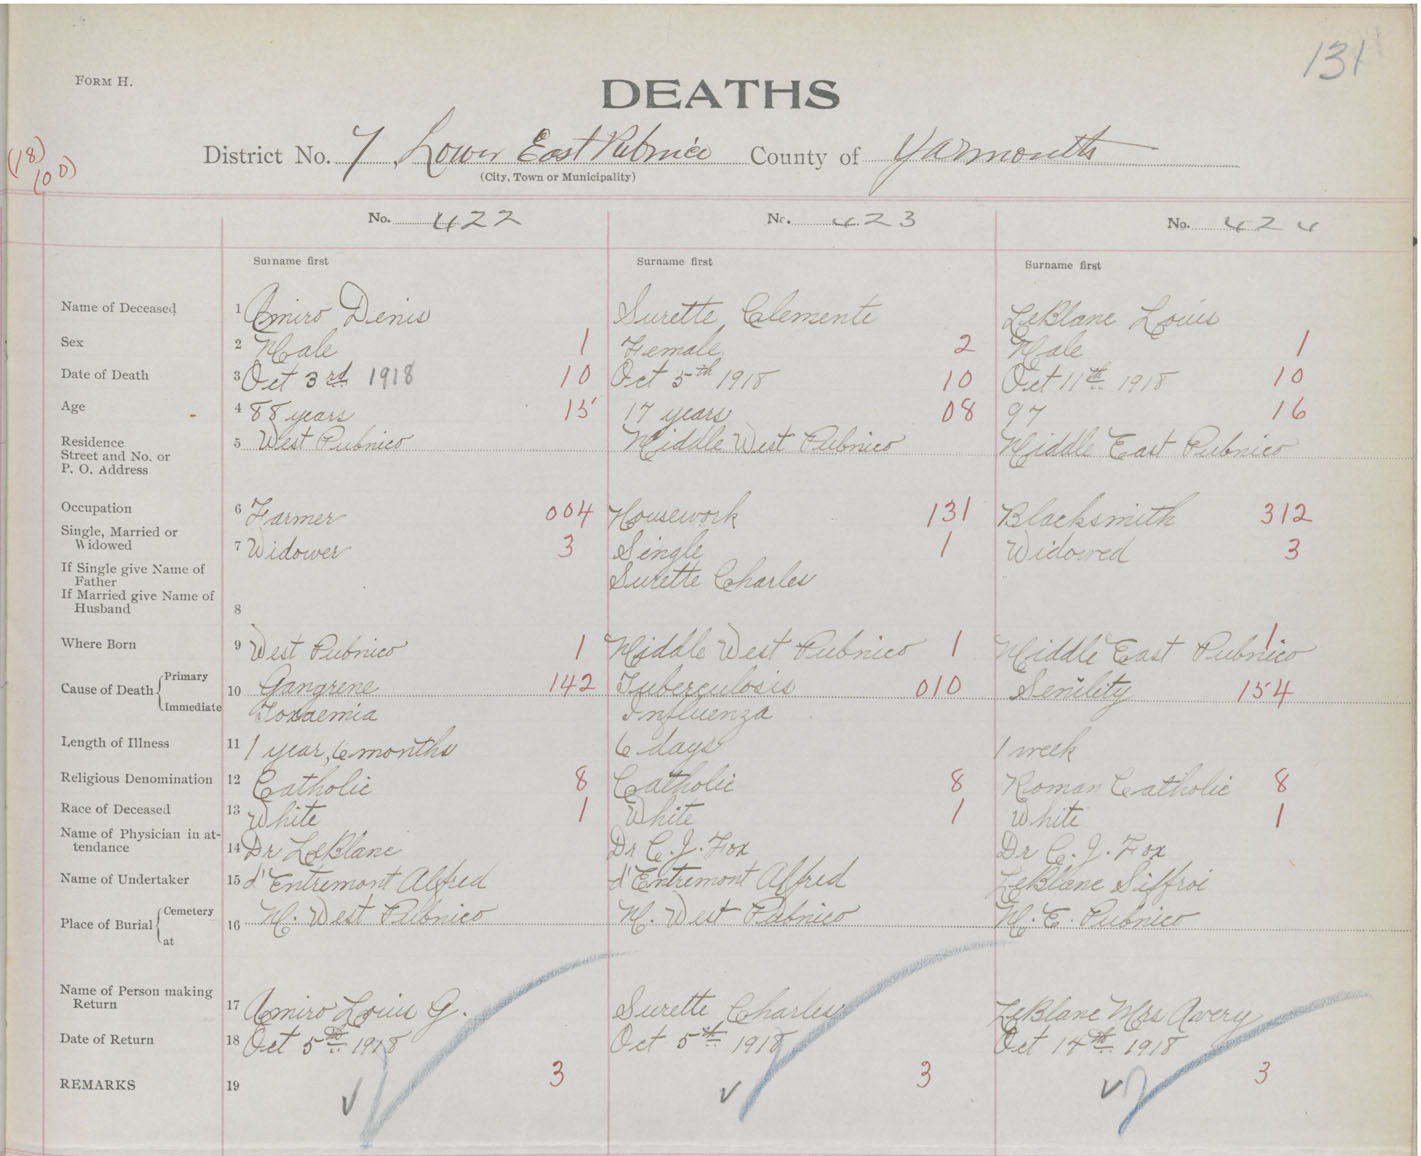 131
FORM H.
DEATHS
(18)
100)
District No. 7 Lower East Pubnico County of Yarmouth
(City, Town or Municipality)
No. 422 No. 423 No. 424
Surname first Surname first Surname first
Name of Deceased 1 Amiro Denis Surette Clemente LeBlane Louis
Sex 2 Male 1 Female 2 Male 1
Date of Death 3 Oct 3rd 1918 10 Oct 5th 1918 10 Oct 11th 1918 10
Age 4 88 years 15 17 years 08 97 16
Residence 5 West Pubnico Middle West Pubnico Middle East Pubnico
Street and No. or
P. O. Address
Occupation 6 Farmer 004 Housework 131 Blacksmith 312
Single, Married or
Widowed 7 Widower 3 Single 1 Widowed 3
If Single give Name of
Father Surette Charles
If Married give Name of
Husband 8
Where Born 9 West Pubnico 1 Middle West Pubnico 1 Middle East Pubnico 1
Cause of Death Primary 10 Gangrene 142 Tuberculosis 010 Senility 154
Immediate Toxaemia Influenza
Length of Illness 11 1 year, 6 months 6 days 1 week
Religious Denomination 12 Catholic 8 Catholic 8 Roman Catholic 8
Race of Deceased 13 White 1 White 1 White 1
Name of Physician in at-
tendance 14 Dr LeBlanc Dr C. J. Fox Dr C. J. Fox
Name of Undertaker 15 d'Entremont Alfred d'Entremont Alfred LeBlanc Siffroi
Place of Burial Cemetery 16 M. West Pubnico M. West Pubnico M. E. Pubnico
at
Name of Person making
Return 17 Amiro Louis G. Surette Charles LeBlanc Mrs Avery
Date of Return 18 Oct 5th 1918 Oct 5th 1918 Oct 14th 1918
REMARKS 19 3 3 3